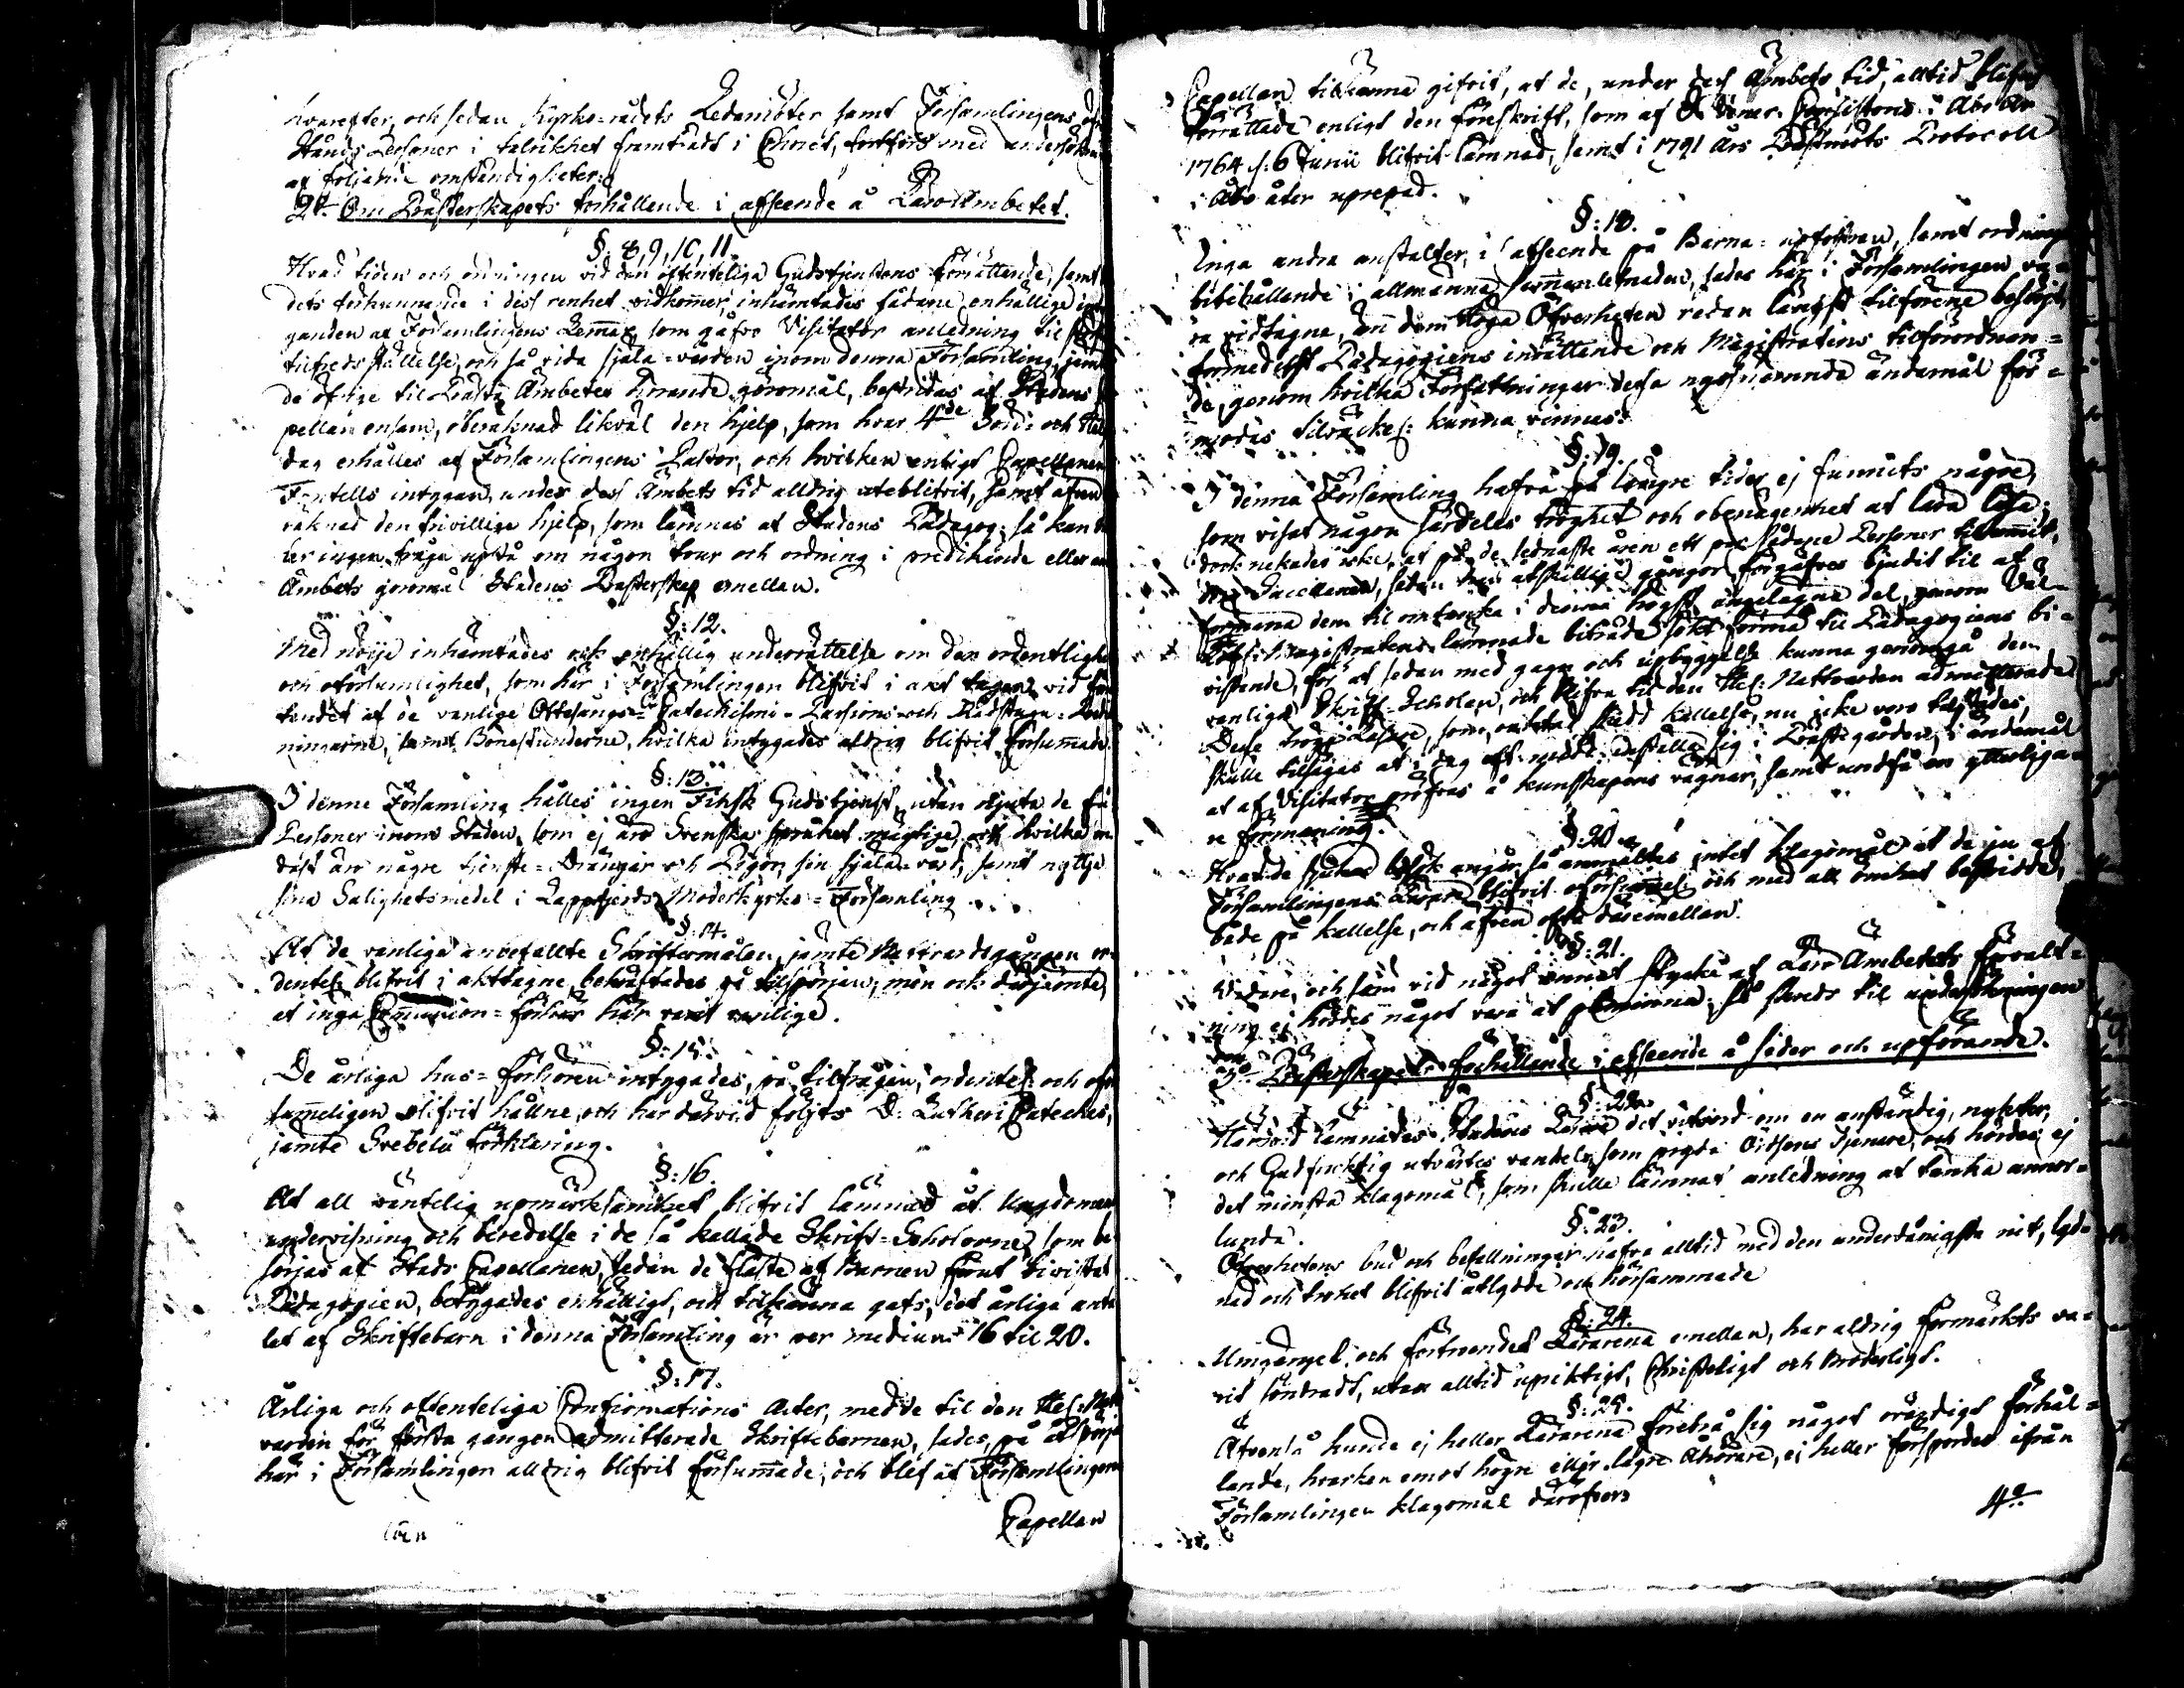 hvarefter, och sedan Kyrko-rådets Ledamöter samt Församlingens
Stånds Personer i talrikhet framträdt i Choret, fortfors med undersökni
af följande omständigheter:
2º Om Prästerskapets förhållande i afseende å Läro-Ämbetet.
§: 8, 9, 10, 11.
Hvad tiden och ordningen vid den offenteliga Gudstjenstens förrättande, samt
dets förkunnande i dess renhet vidkommer, inhämtades sådane enhällige
ganden af Församlingens Lemmar, som gåfvo Visitator anledning til
tilfredsställelse, och så vida själa-vården inom denna Församling, jemte
de öfrige til Prästa Ämbetet hörande göromål, bestridas af Stadens
pellan ensam, oberäknad likväl den hjelp, som hvar 4de Bön- och
dag erhålles af Församlingens Pastor, och hvilken enligt Capellanen
Forsells intygan, under dess Ämbets tid alldrig uteblifvit, samt äfven
räknad den frivillige hjelp, som lämnas af Stadens Pädagog; så kan
ler ingen fråga upstå om någon tour och ordning i predikande eller
Ämbets göromål Stadens Prästerskap emellan.
§: 12.
Med nöije inhämtades ock enhällig underrättelse om den ordentlighet
och oförsumlighet, som här i Församlingen blifvit i akt tagen vid
tandet af de vanlige Ottesångs- Catechismi- Passions- och Rådstugu-
ningarne, samt Bönestunderne, hvilka intygades aldrig blifvit försummade.
§: 13.
I denne Församling hålles ingen Finsk Gudstjenst, utan njuta de få
Personer inom Staden, som ej äro Svenska språket mägtige, och hvilka
dast äro några tjenste-Drängar och Pigor, sin själa-vård, samt nyttja
sina Salighetsmedel i Lappfjerds Moderkyrko-Församling.
§: 14.
At de vanlige anbefallte Skriftermålen, jämte Nattvardsgången or-
dentel: blifvit i akttagne, bekräftades på tilspörjan, men ock därjämte,
at inga Communion-förhör här varit vanlige.
§: 15.
De årliga hus-förhören intygades, på tilfrågan, ordentel: och oför
summeligen blifvit hållne, och har därvid följts D: Lutheri Cateches,
jämte Svebelii förklaring.
§: 16.
At all väntelig upmärksamhet blifvit lämnad åt Ungdomens
undervisning och beredelse i de så kallade Skrift-Scholorne, som be-
sörjas af Stads Capellanen, sedan de fläste af Barnen förut bivistat
Pädagogien, betygades enhälligt, och tilkänna gafs, det årliga anta
let af Skriftebarn i denna Församling är per medium 16 til 20.
§: 17.
Årliga och offenteliga Confirmations Acter, med de til den Hel: Natt
varden för första gången admitterade Skriftebarnen, sades, på
här i Församlingen alldrig blifvit försummade, och blef af Församlingens
Capellan
Capellan tilkänna gifvit, at de, under dess Ämbets tid, alltid blifvit
förrättade enligt den föreskrift, som af V. Vener. Consistorio i Åbo år
1764 d: 6 Junii blifvit lämnad, samt i 1791 års Prästmöts Protocoll
i Åbo åter uprepad.
§: 18.
Inga andra anstalter, i afseende på Barna-upfostran, samt ordnings
bibehållande i allmänna sammanlefnaden, sades här i Församlingen va-
ra vidtagne, än dem Höga Öfverheten redan längst tilförene besörjt,
förmedelst Pädagogiens inrättande och Magistratens tilförordnan-
de, genom hvilka Författningar dessa ögnade ändamål för-
modas tilräckel: kunna vinnas.
§: 19.
I denna Församling hafva på längre tider ej funnits några,
som visat någon särdeles tröghet och obenägenhet at lära läsa;
dock nekades icke, at på de sednaste åren ett par sådane Personer tilkommit,
dem Capellanen, sedan han åtskillige gångor förgäfves bjudit til at
förmana dem til omtanka i denna högst angelägna del, genom Väl-
Lofl: Magistratens lämnade biträde sökt förmå til Pädagogiens bi-
vistande, för at sedan med gagn och upbyggelse kunna genomgå den
vanliga Skrift-Scholan, och blifva til den Hel: Nattvarden admitterade.
Desse tröge Läsare, som, oaktad skedd kallelse, nu icke voro tilstädes,
skulle tilsägas at i dag eft. midd: inställa sig i Prästegården, i ändamål
at af Visitator pröfvas å kunskapens vägnar, samt undfå en ytterliga-
re förmaning.
§: 20.
Hvad de sjukas besök angår, så anmältes intet klagomål at de ju af
Församlingens Lärare blifvit oförsummel: och med all ömhet bestridde,
både på kallelse, och äfven ofta däremellan.
§: 21.
Vidare, och som vid något annat stycke af Läro Ämbetets förvalt-
ning ej hördes något vara at påminna, så skreds til undersökningen
om
3º Prästerskapets förhållande i afseende å seder och upförande.
§: 22.
Härvid lämnades Stadens Lärare det vitsord om en anständig, nykter,
och Gudfruktig utvärtes vandel, som prydt Ordsens Tjenare, och hördes ej
det minsta klagomål, som skulle lämnat anledning at tänka annor-
lunda.
§: 23.
Öfverhetens bud och befallningar hafva alltid med den underdånigsta nit, lyd-
nad och trohet blifvit åtlydde och hörsammade
§: 24.
Umgänget, och förtroendet Lärarena emellan, har aldrig förmärkts va-
rit söndradt, utan alltid upriktigt, Christeligt och Broderligt.
§: 25.
Äfvenså kunde ej heller Lärarena förebrås sig något ovärdigt förhål-
lande, hvarken emot högre eller lägre Åhörare, ej heller försportes ifrån
Församlingen klagomål däröfver.
4º